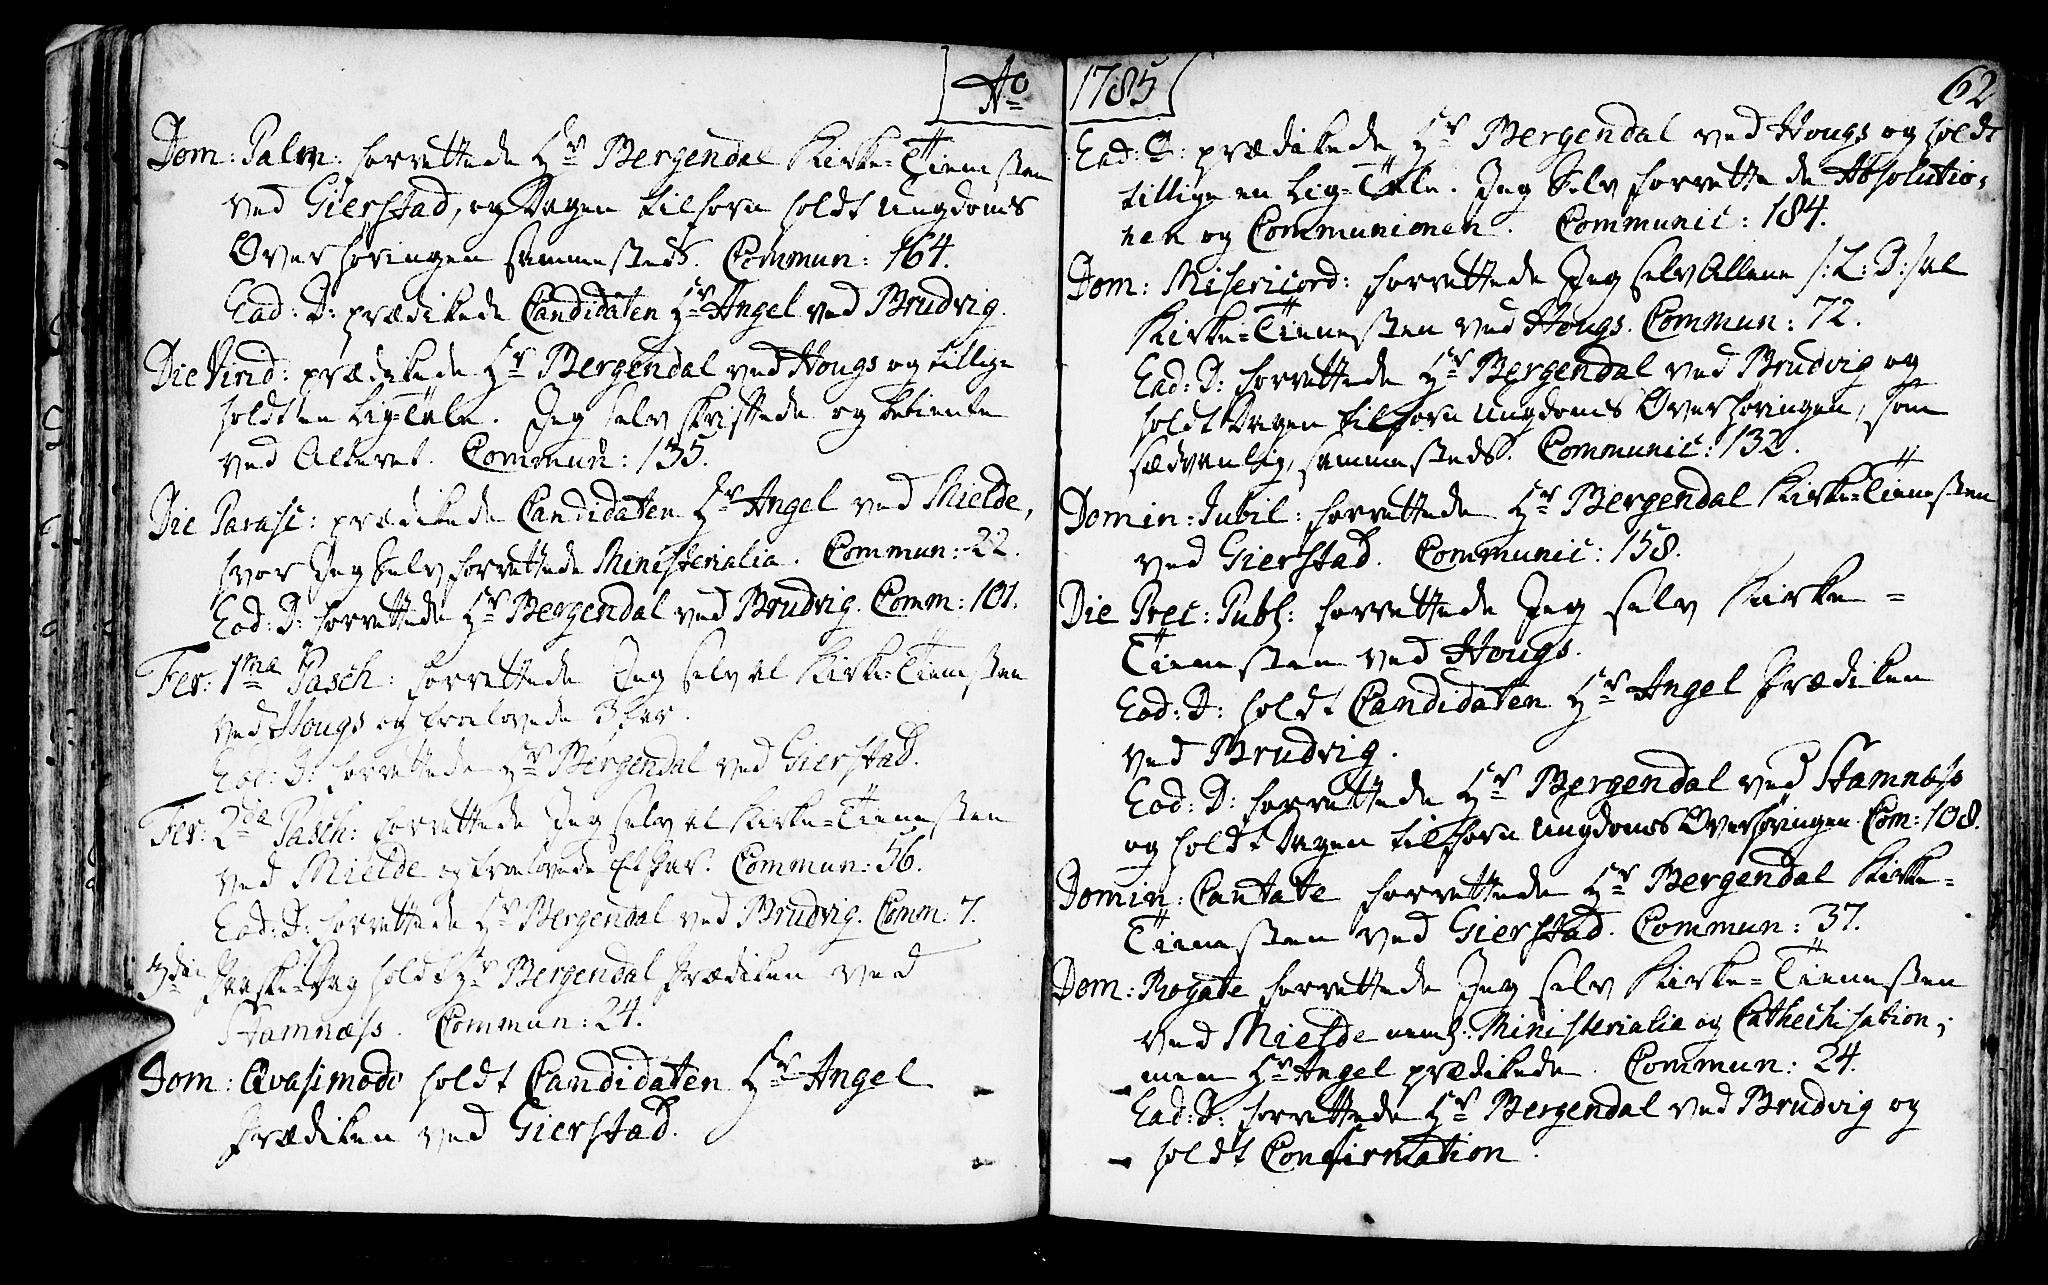 Ao
Dom: Palm: forrettede Hr Bergendal Kirke=Tienesten
ved Gierstad, og Dagen tilforn holdt Ungdoms
Overhøringen sammesteds. Commun: 164.
Ead: D: prædikede Candidaten Hr Angel ved Brudvig.
Die Virid: prædikede Hr Bergendal ved Hougs og tillige
holdt en Lig=Tale. Jeg selv skriftede og betiente
ved Alteret. Commun: 135.
Die Parasc: prædikede Candidaten Hr Angel ved Mielde,
hvor Jeg Selv forrettede Ministerialia. Commun: 22.
Ead: D: forrettede Hr Bergendal ved Brudvig. Comm: 101.
Fer: 1ma Pasch: forrettede Jeg selv al Kirke=Tienesten
ved Hougs og trolovede 3 Par.
Ead: D: forrettede Hr Bergendal ved Gierstad.
Fer: 2da Pasch: forrettede Jeg selv al Kirke=Tienesten
ved Mielde og trolovede Et Par. Commun: 56.
Ead: D: forrettede Hr Bergendal ved Brudvig. Comm: 7.
3die Paaske=Dag holdt Hr Bergendal Prædiken ved
Stamnæss. Commun: 24.
Dom: Qvasimodo holdt Candidaten Hr Angel
Prædiken ved Gierstad.
1785
62
Ead: D: prædikede Hr Bergendal ved Hougs og holdt
tillige en Lig=Tale. Jeg Selv forrettede Absolutio=
nen og Communionen. Communic: 184.
Dom: Misericord: forrettede Jeg selv Allene /: L: D: / al
Kirke=Tienesten ved Hougs. Commun: 72.
Ead: D: forrettede Hr Bergendal ved Brudvig og
holdt Dagen tilforn Ungdoms Overhøringen, som
sædvanlig, sammesteds. Communic: 132.
Domin: Jubil: forrettede Hr Bergendal Kirke=Tienesten
ved Gierstad. Communic: 158.
Die Prec: Publ: forrettede Jeg selv Kirke=
Tienesten ved Hougs.
Ead: D: holdt Candidaten Hr Angel Prædiken
ved Brudvig.
Ead: D: forrettede Hr Bergendal ved Stamnæss
og holdt Dagen tilforn Ungdoms Overhøringen. Com: 108.
Domin: Cantate forrettede Hr Bergendal Kirke=
Tienesten ved Gierstad. Commun: 37.
Dom: Rogate forrettede Jeg selv Kirke=Tienesten
ved Mielde neml: Ministerialia og Cathechisation;
men Hr Angel prædikede. Commun: 24.
Ead: D: forrettede Hr Bergendal ved Brudvig og
holdt Confirmation.